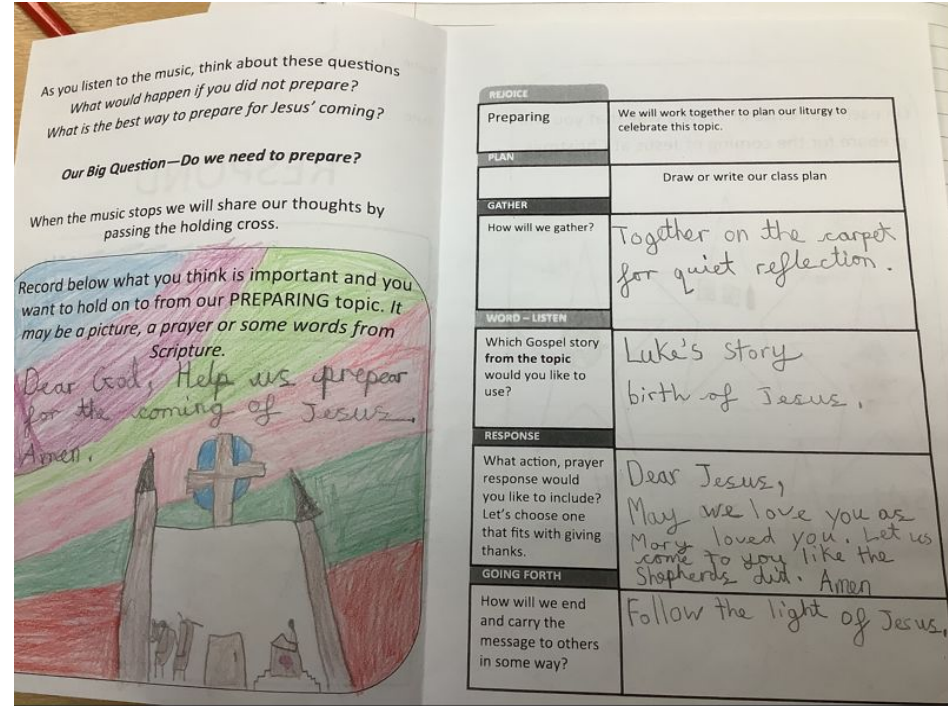 As you listen to the music, think about these questions
What would happen if you did not prepare?
What is the best way to prepare for Jesus' coming?
Our Big Question—Do we need to prepare?
When the music stops we will share our thoughts by
passing the holding cross.
Record below what you think is important and you
want to hold on to from our PREPARING topic. It
may be a picture, a prayer or some words from
Scripture.
Dear God, Help us prepear
for the coming of Jesus.
Amen.
REJOICE
Preparing
We will work together to plan our liturgy to
celebrate this topic.
PLAN
Draw or write our class plan
GATHER
How will we gather?
Together on the carpet
for quiet reflection.
WORD – LISTEN
Which Gospel story
from the topic
would you like to
use?
Luke's story
birth of Jesus.
RESPONSE
What action, prayer
response would
you like to include?
Let's choose one
that fits with giving
thanks.
Dear Jesus,
May we love you as
Mary loved you. Let us
come to you like the
Shepherds did. Amen
GOING FORTH
How will we end
and carry the
message to others
in some way?
Follow the light of Jesus.